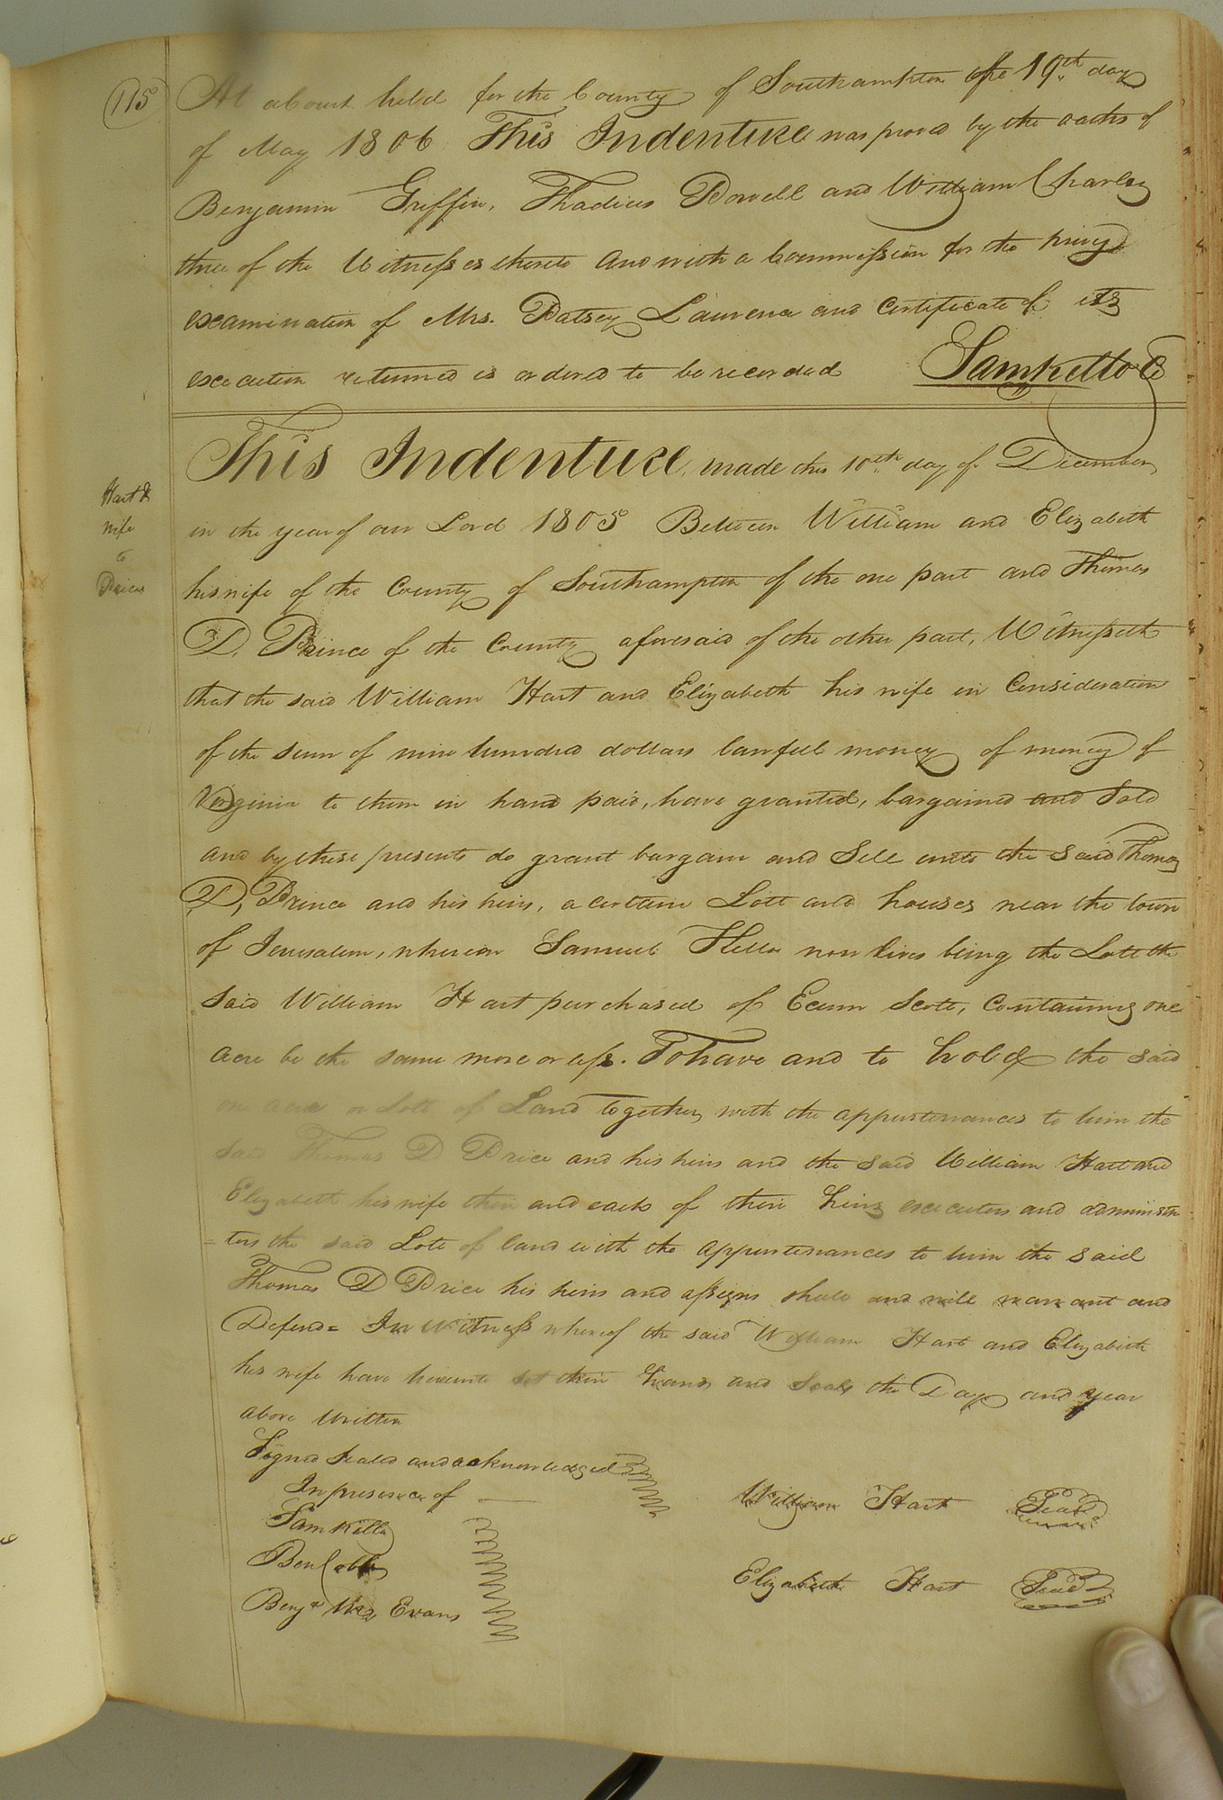 115
At a Court held for the County of Southampton the 19th day
of May 1806 This Indenture was proved by the oaths of
Benjamin Griffin, Thadieus Powell and William Charles
three of the Witnesses thereto and with a Commission for the privy
examination of Mrs. Patsey Laurence and Certificate of its
execution returned is ordered to be recorded Sam Kello C
Hart &
wife
to
This Indenture made this 10th day of December,
in the year of our Lord 1805 Between William and Elizabeth
his wife of the County of Southampton of the one part and Thomas
D. Prince of the County aforesaid of the other part, Witnesseth
that the said William Hart and Elizabeth his wife in Consideration
of the sum of nine hundred dollars lawfull money of money of
Virginia to them in hand paid, have granted, bargained and Sold
and by these presents do grant bargain and Sell unto the said Thomas
D, Prince and his heirs, a certain Lott and houses near the town
of Jerusalem, whereon Samuel now lives being the Lott the
said William Hart purchased of Scott, Containing one
acre be the same more or less. To have and to hold the said
one acre or Lott of Land together with the appurtenances to him the
said Thomas D Price and his heirs and the said William Hart and
Elizabeth his wife their and each of their heirs executors and administra
=tors the said Lott of land with the appurtenances to him the said
Thomas D Price his heirs and assigns shall and will warrant and
Defend= In Witness whereof the said William Hart and Elizabeth
his wife have hereunto set their hands and Seals the Day and year
above Written
Signed Sealed and acknowledged
In presence of
Sam Kello
Ben Cobb
Benja Wm Evans
William Hart Seal
Elizabeth Hart Seal